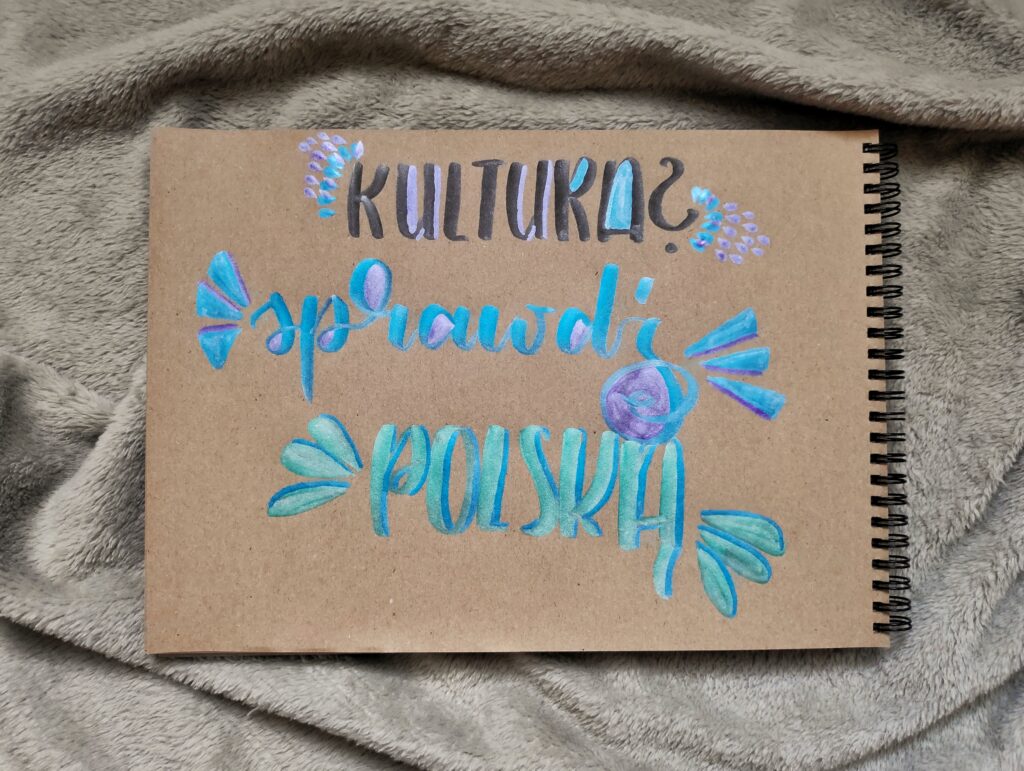 KULTURA?
sprawdź
POLSKĄ